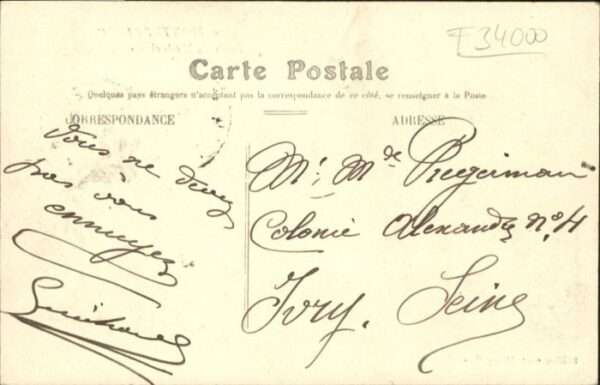 E34000
Carte Postale
Quelques pays étrangers n'acceptent pas la correspondance de ce côté, se renseigner à la Poste
CORRESPONDANCE
ADRESSE
Vous ne devez
pas vous
ennuyer
Mr. Mde
Colonie Alexandre No. 4
Ivry. Seine